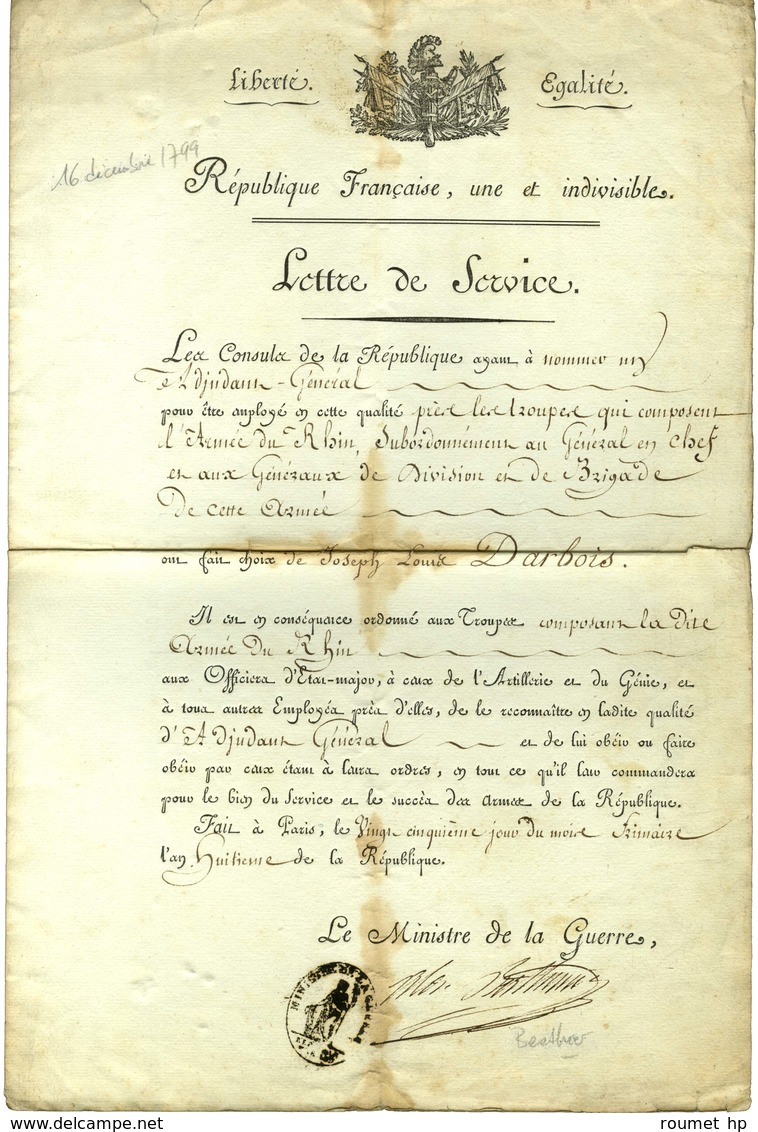 Liberté. Egalité.
16 décembre 1799
République Française, une et indivisible.
Lettre de Service.
Les Consuls de la République ayant à nommer un
Adjudant-Général
pour être employé en cette qualité près les troupes qui composent
l'Armée du Rhin, Subordonnément au Général en Chef
et aux Généraux de Division et de Brigade
De cette Armée
ont fait choix de Joseph Louis Darbois.
Il est en conséquence ordonné aux Troupes composant la dite
Armée du Rhin
aux Officiers d'Etat-major, à ceux de l'Artillerie et du Génie, et
à tous autres Employés près d'elles, de le reconnaître en ladite qualité
d'Adjudant Général et de lui obéir ou faire
obéir par ceux étant à leurs ordres, en tout ce qu'il leur commandera
pour le bien du Service et le succès des armes de la République.
Fait à Paris, le Vingt cinquième jour du mois Frimaire
l'an Huitieme de la République.
Le Ministre de la Guerre,
MINISTRE DE LA GUERRE
Alex. Berthier
delcampe.net
roumet hp